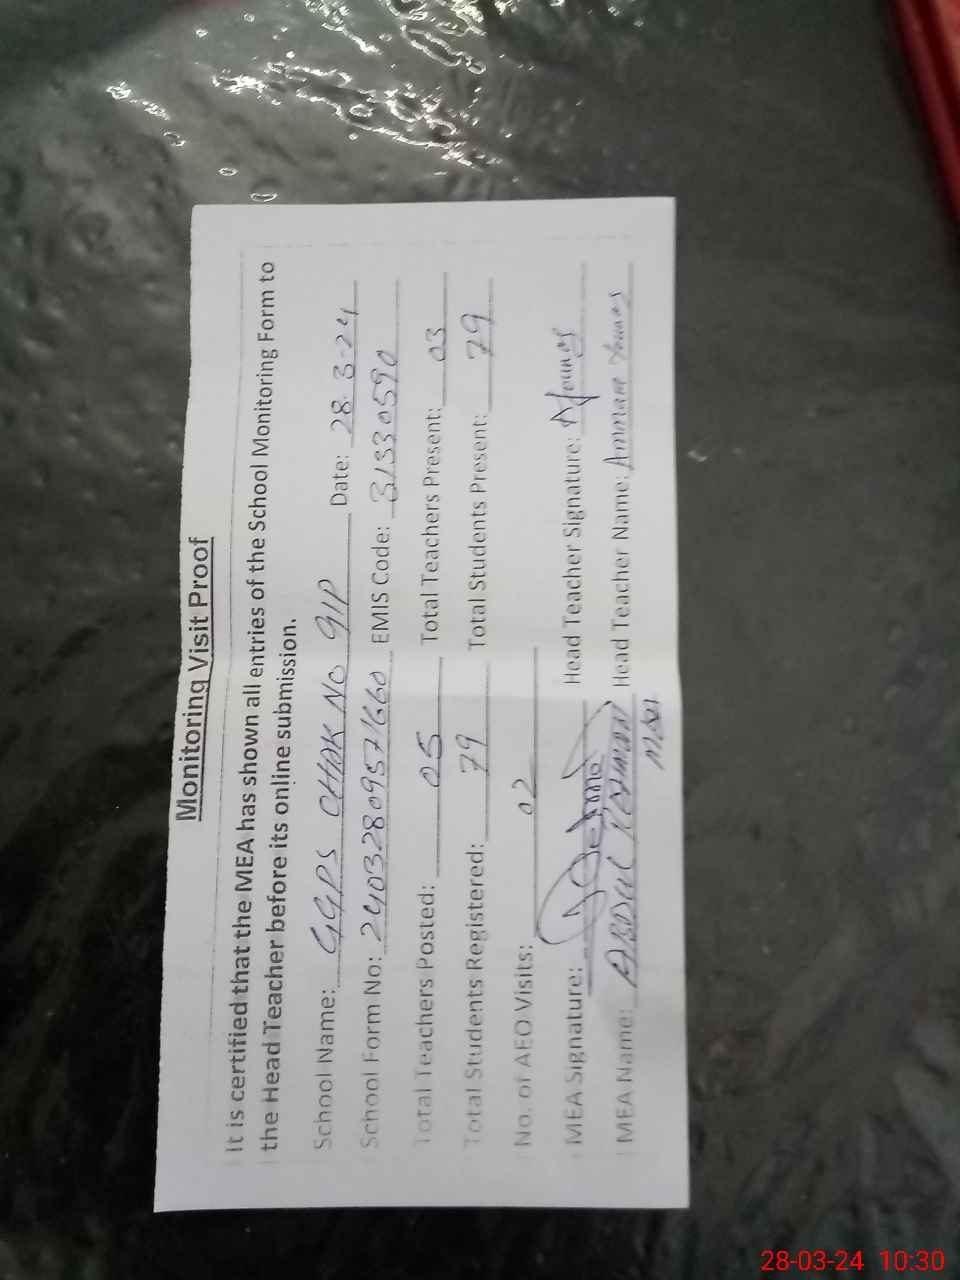 Monitoring Visit Proof
It is certified that the MEA has shown all entries of the School Monitoring Form to
the Head Teacher before its online submission.
School Name: GGPS CHAK NO 91P Date: 28-3-24
School Form No: 24032809571660 EMIS Code: 31330590
Total Teachers Posted: 05 Total Teachers Present: 03
Total Students Registered: 79 Total Students Present: 79
No. of AEO Visits: 02
MEA Signature: Head Teacher Signature: AYounas
MEA Name: ABDUL REHMAN Head Teacher Name: Ammara Younas
28-03-24 10:30